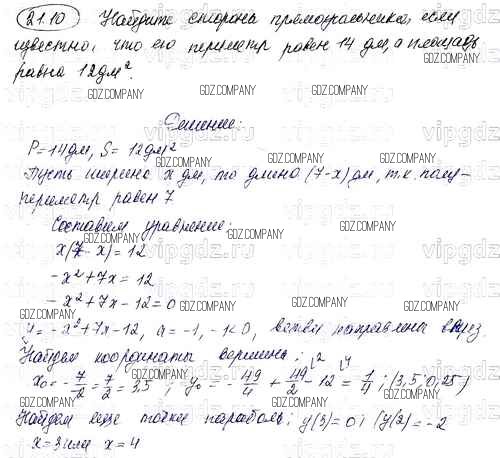 21.10 Найдите стороны прямоугольника, если
известно, что его периметр равен 14 дм, а площадь
равна 12 дм².
GDZ.COMPANY GDZ.COMPANY GDZ.COMPANY
Решение:
P = 14 дм, S = 12 дм²
Пусть ширина x дм, то длина (7-x) дм, т.к. полу-
периметр равен 7
Составим уравнение:
x(7-x) = 12
-x² + 7x = 12
-x² + 7x - 12 = 0
y = -x² + 7x - 12, a = -1, -1 < 0, ветви направлены вниз.
Найдем координаты вершины:
x₀ = -7/-2 = 7/2 = 3,5 ; y₀ = -49/4 + 49/2 - 12 = 1/4 ; (3,5; 0,25)
Найдем еще точки параболы: y(3) = 0; y(2) = -2
x = 3 или x = 4